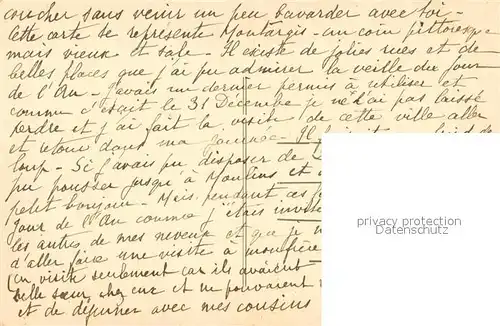 coucher sans venir un peu bavarder avec toi -
cette carte te représente Montargis - un coin pittoresque
mais vieux et sale - Il existe de jolies rues et de
belles places que j'ai pu admirer la veille du jour
de l'An - J'avais un dernier permis à utiliser et
comme c'était le 31 Décembre je ne l'ai pas laissé
perdre et j'ai fait la visite de cette ville aller
et retour dans ma journée - Il
loup - Si j'avais pu disposer de
pu pousser jusqu'à Moulins et
petit bonjour - Mais pendant ces
jour de l'An comme j'étais invité
les autres de mes neveux et que je
d'aller faire une visite à
(un visite seulement car ils avaient
belle sœur chez eux et ne pouvaient
et de déjeuner avec mes cousins
privacy protection
Datenschutz